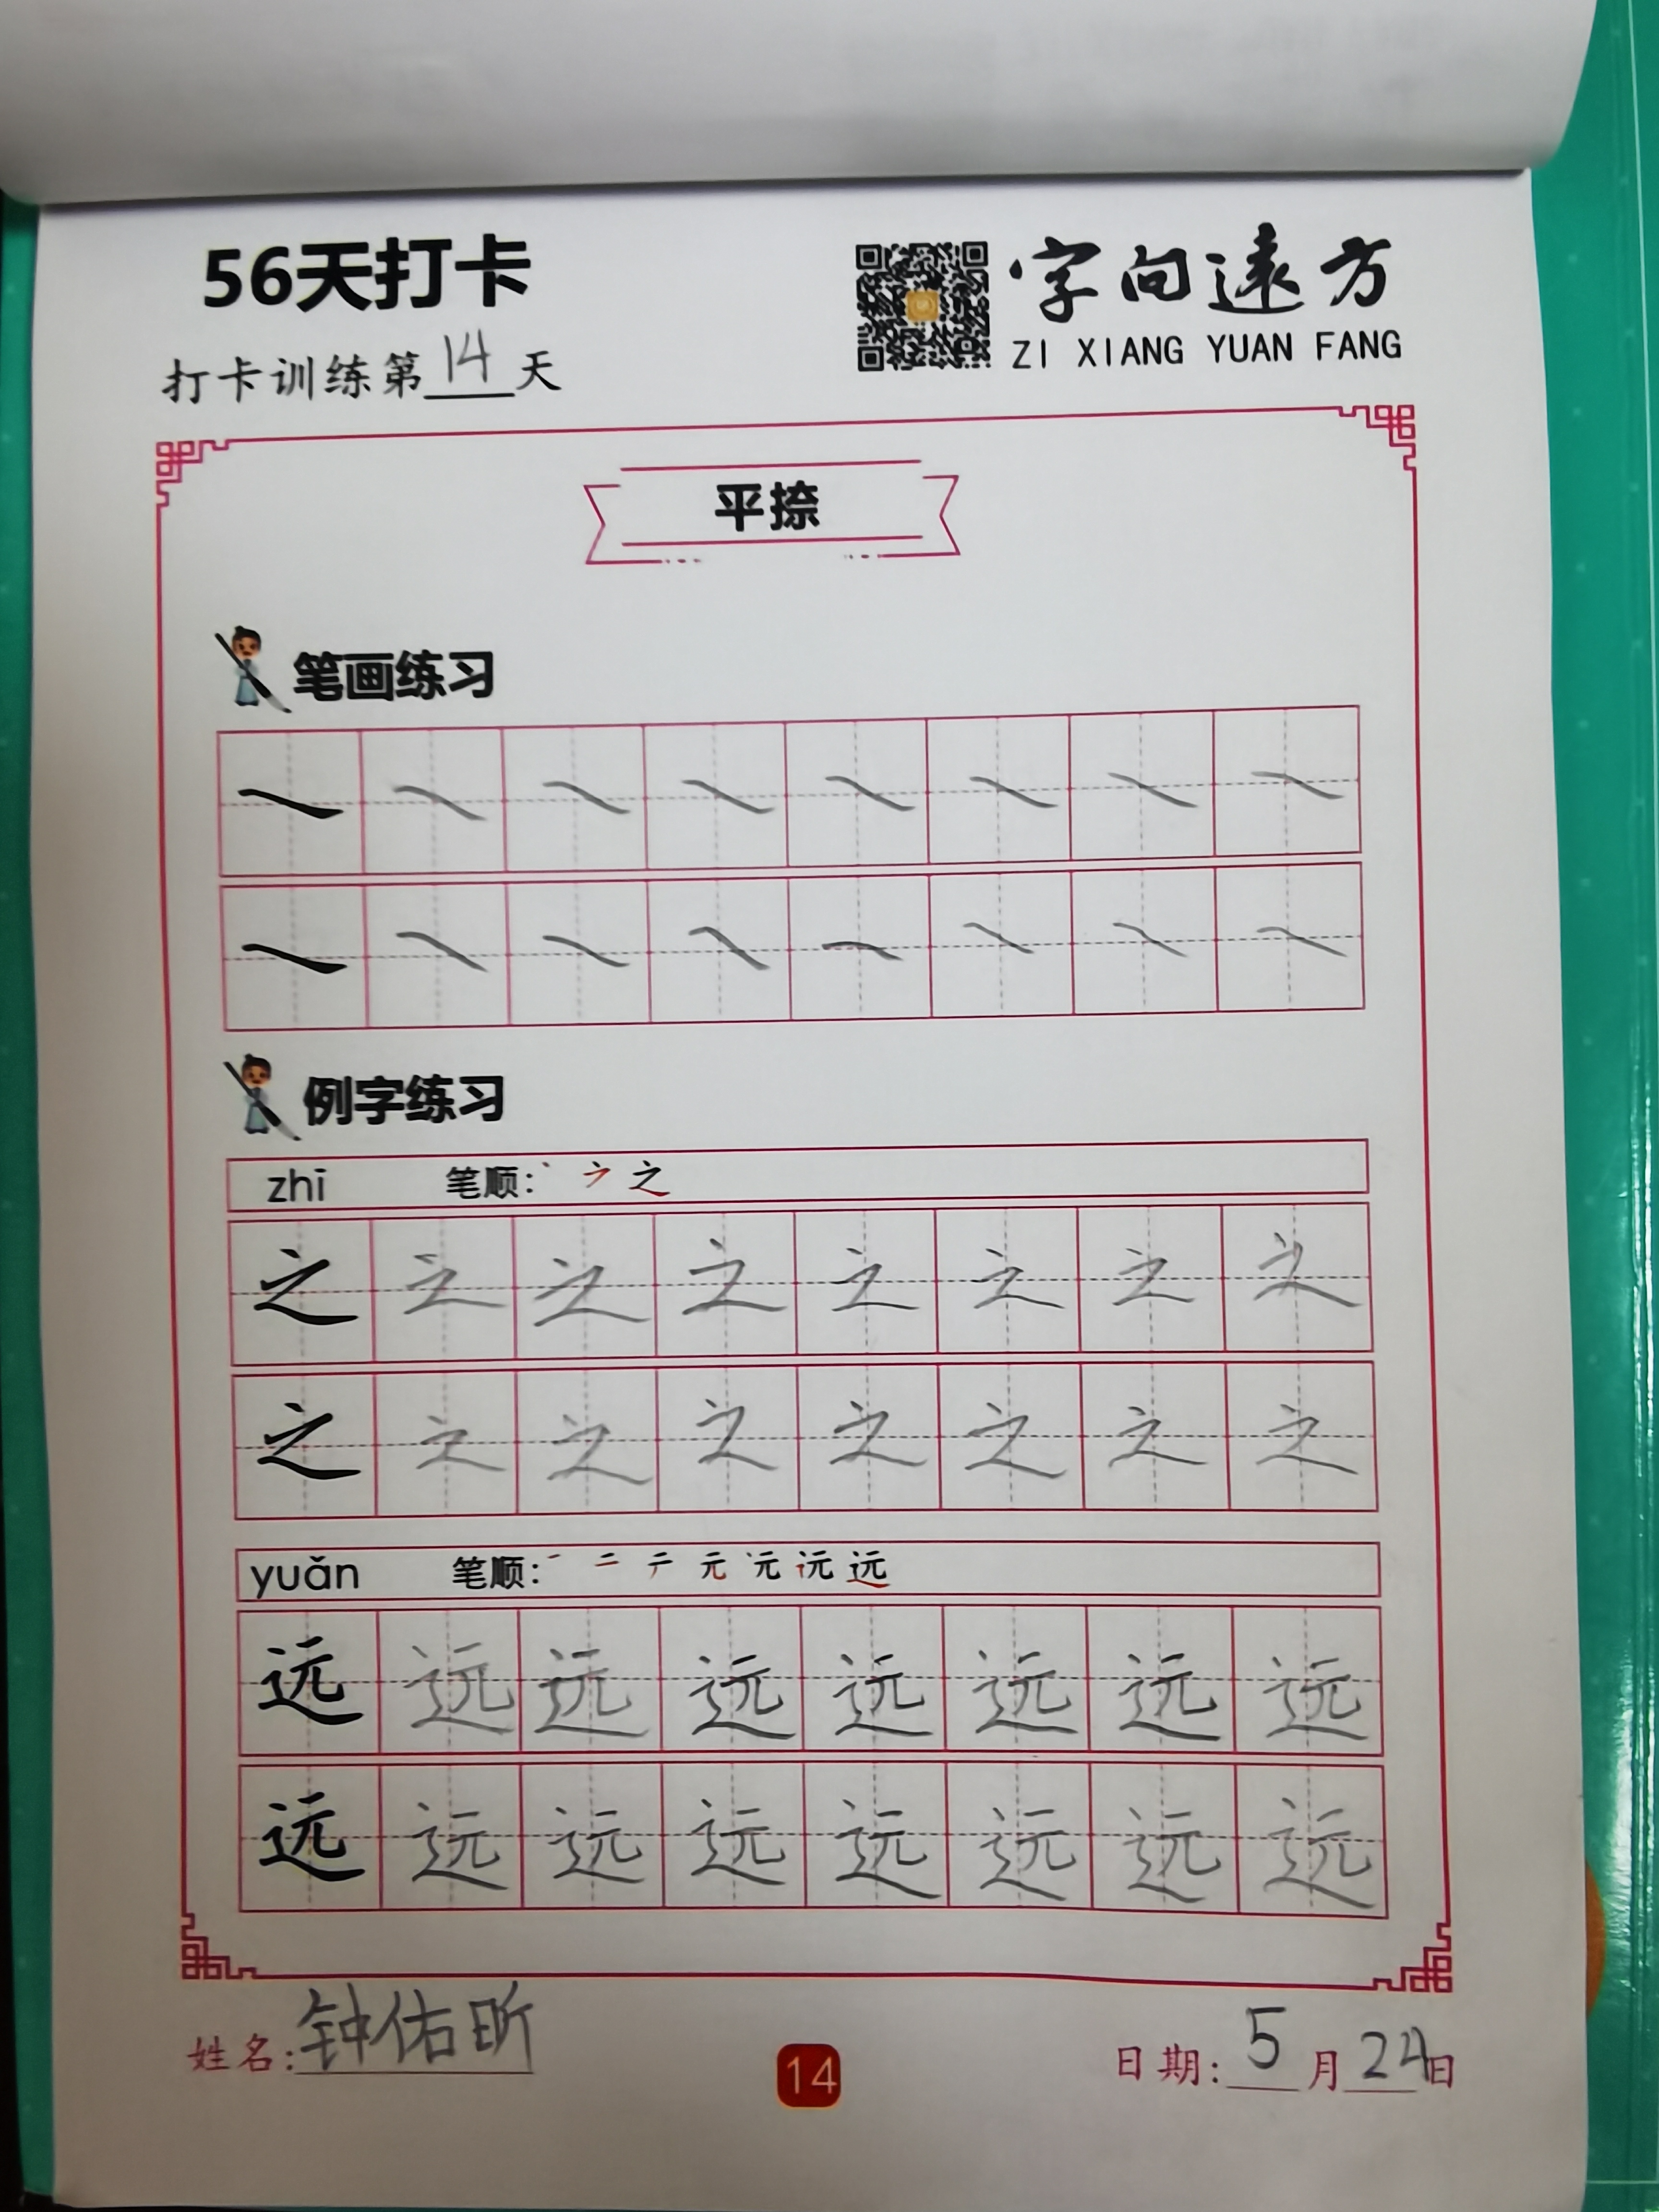 56天打卡
字向遠方
ZI XIANG YUAN FANG
打卡训练第14天
平捺
笔画练习
例字练习
zhī 笔顺: 丶 之
之 之 之 之 之 之 之 之
之 之 之 之 之 之 之 之
yuǎn 笔顺: 一 二 亍 元 远
远 远 远 远 远 远 远 远
远 远 远 远 远 远 远 远
姓名: 钟佑昕
14
日期: 5月24日